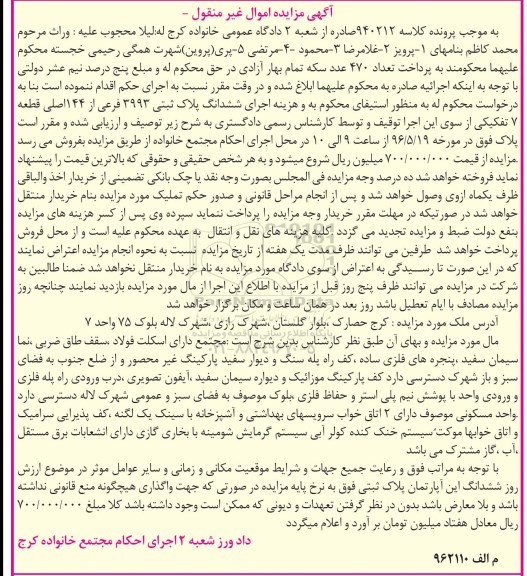 آگهی مزایده اموال غیر منقول –
به موجب پرونده کلاسه ۹۴۰۲۱۲صادره از شعبه ۲ دادگاه عمومی خانواده کرج له:لیلا محجوب علیه : وراث مرحوم
محمد کاظم بنامهای ۱-پرویز ۲-غلامرضا ۳-محمود -۴-مرتضی ۵-پری(پروین)شهرت همگی رحیمی خجسته محکوم
علیهما محکومند به پرداخت تعداد ۴۷۰ عدد سکه تمام بهار آزادی در حق محکوم له و مبلغ پنج درصد نیم عشر دولتی
با توجه به اینکه اجرائیه صادره به محکوم علیهما ابلاغ شده و در وقت مقرر نسبت به اجرای حکم اقدام ننموده است بنا به
درخواست محکوم له به منظور استیفای محکوم به و هزینه اجرای ششدانگ پلاک ثبتی ۳۹۹۳ فرعی از ۱۴۴اصلی قطعه
۷ تفکیکی از سوی این اجرا توقیف و توسط کارشناس رسمی دادگستری به شرح زیر توصیف و ارزیابی شده و مقرر است
پلاک فوق در مورخه ۹۶/۵/۱۹ از ساعت ۹ الی ۱۰ در محل اجرای احکام مجتمع خانواده از طریق مزایده بفروش می رسد
.مزایده از قیمت ۷۰۰/۰۰۰/۰۰۰ میلیون ریال شروع میشود و به هر شخص حقیقی و حقوقی که بالاترین قیمت را پیشنهاد
نماید فروخته خواهد شد ده درصد وجه مزایده فی المجلس بصورت وجه نقد یا چک بانکی تضمینی از خریدار اخذ والباقی
ظرف یکماه ازوی وصول خواهد شد و پس از انجام مراحل قانونی و صدور حکم تملیک مورد مزایده بنام خریدار منتقل
خواهد شد در صورتیکه در مهلت مقرر خریدار وجه مزایده را پرداخت ننماید سپرده وی پس از کسر هزینه های مزایده
بنفع دولت ضبط و مزایده تجدید می گردد .کلیه هزینه های نقل و انتقال به عهده محکوم علیه است و از محل فروش
پرداخت خواهد شد طرفین می توانند ظرف مدت یک هفته از تاریخ مزایده نسبت به نحوه انجام مزایده اعتراض نمایند
که در این صورت تا رسیدگی به اعتراض از سوی دادگاه مورد مزایده به نام خریدار منتقل نخواهد شد ضمنا طالبین به
شرکت در مزایده می توانند ظرف پنج روز قبل از مزایده با اطلاع این اجرا از مال مورد مزایده بازدید نمایند چنانچه روز
مزایده مصادف با ایام تعطیل باشد روز بعد در همان ساعت و مکان برگزار خواهد شد
آدرس ملک مورد مزایده : کرج حصارک ،بلوار گلستان ،شهرک رازی ،شهرک لاله بلوک ۷۵ واحد ۷
مال مورد مزایده و بهای آن طبق نظر کارشناسی بدین شرح است :مجتمع دارای اسکلت فولاد ،سقف طاق ضربی ،نما
سیمان سفید ،پنجره های فلزی ساده ،کف راه پله سنگ و دیوار سفید پارکینگ غیر محصور و از ضلع جنوب به فضای
سبز و باز شهرک دسترسی دارد کف پارکینگ موزائیک و دیواره سیمان سفید ،آیفون تصویری ،درب ورودی راه پله فلزی
و ورودی واحد با پوشش نیم پلی استر و حفاظ فلزی ،بلوک موصوف به فضای سبز و عمومی شهرک لاله دسترسی دارد
.واحد مسکونی موصوف دارای ۲ اتاق خواب سرویسهای بهداشتی و آشپزخانه با سینک یک لگنه ،کف پذیرایی سرامیک
و اتاق خوابها موکت،سیستم خنک کننده کولر آبی سیستم گرمایش شومینه با بخاری گازی دارای انشعابات برق مستقل
،آب ،گاز مشترک می باشد
با توجه به مراتب فوق و رعایت جمیع جهات و شرایط موقعیت مکانی و زمانی و سایر عوامل موثر در موضوع ارزش
روز ششدانگ این آپارتمان پلاک ثبتی فوق به نرخ پایه مزایده در صورتی که جهت واگذاری هیچگونه منع قانونی نداشته
باشد و بلا معارض باشد بدون در نظر گرفتن تعهدات و دیونی که ممکن است وجود داشته باشد کلا مبلغ ۷۰۰/۰۰۰/۰۰۰
ریال معادل هفتاد میلیون تومان بر آورد و اعلام میگردد
داد ورز شعبه ۲ اجرای احکام مجتمع خانواده کرج
م الف ۹۶۲۱۱۰